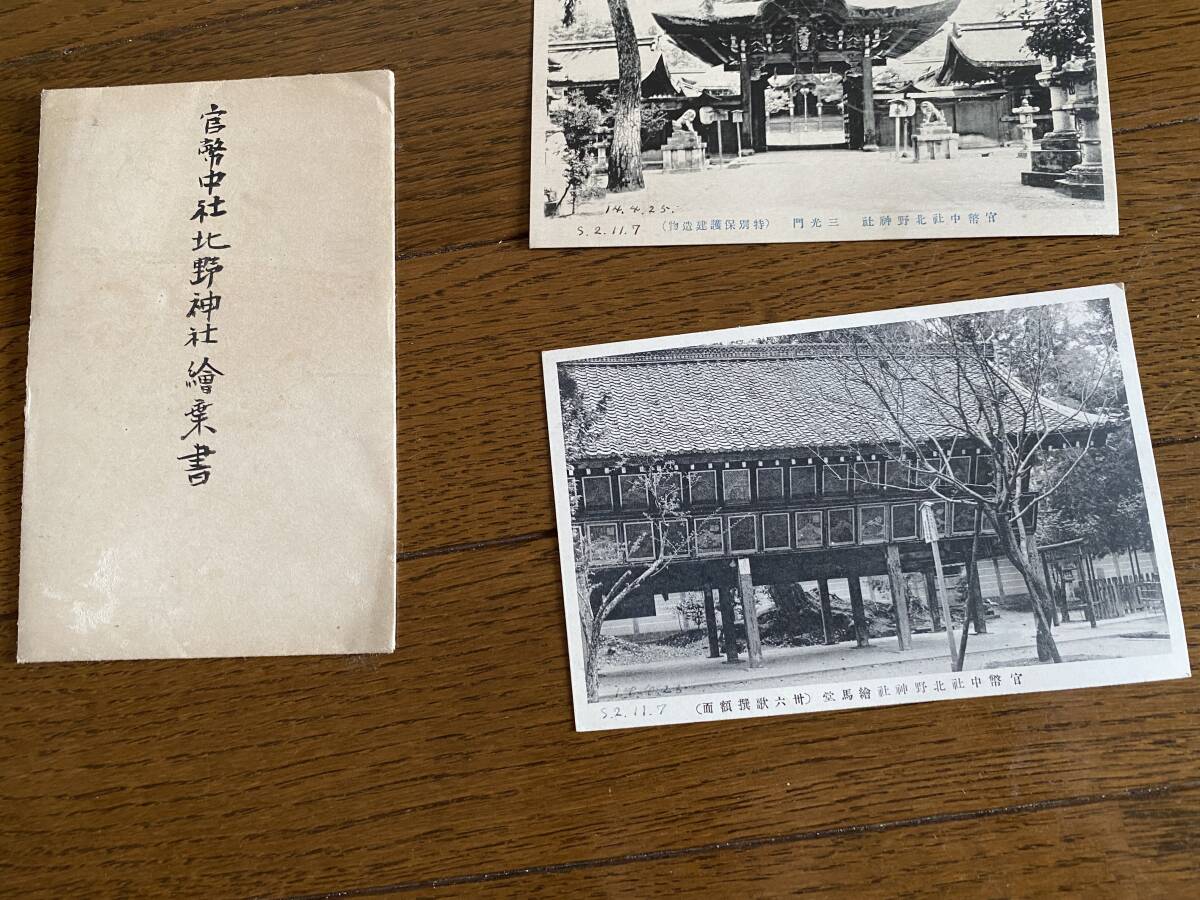 官幣中社北野神社繪葉書
14.4.25.
S.2.11.7
(物造建護保別特) 門光三 社神野北社中幣官
S.2.11.7
(面額撰歌六卅) 堂馬繪社神野北社中幣官